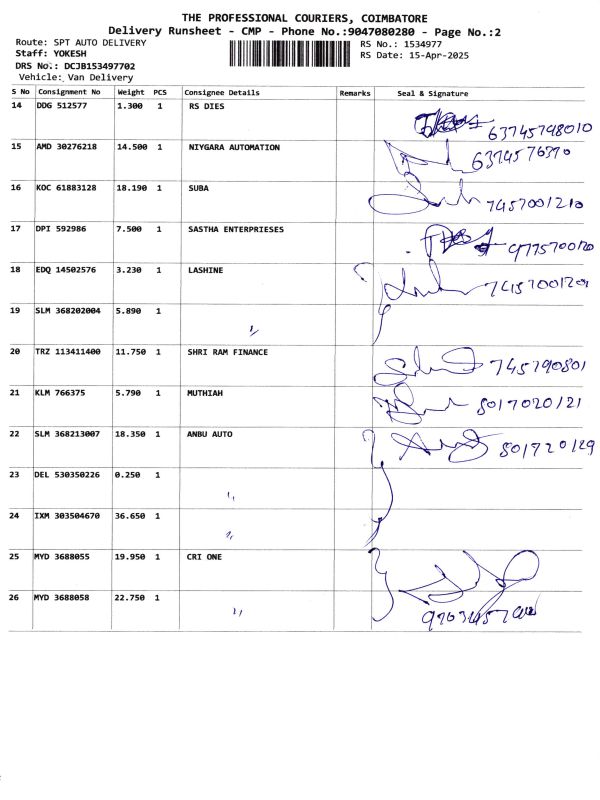 THE PROFESSIONAL COURIERS, COIMBATORE
Delivery Runsheet - CMP - Phone No.:9047080280 - Page No.:2
Route: SPT AUTO DELIVERY
RS No.: 1534977
Staff: YOKESH
RS Date: 15-Apr-2025
DRS No.: DCJB153497702
Vehicle: Van Delivery
S No Consignment No Weight PCS Consignee Details Remarks Seal & Signature
14 DDG 512577 1.300 1 RS DIES
15 AMD 30276218 14.500 1 NIYGARA AUTOMATION 6374576370
16 KOC 61883128 18.190 1 SUBA 7457001210
17 DPI 592986 7.500 1 SASTHA ENTERPRIESES 9775700120
18 EDQ 14502576 3.230 1 LASHINE
19 SLM 368202004 5.890 1
20 TRZ 113411400 11.750 1 SHRI RAM FINANCE 745790801
21 KLM 766375 5.790 1 MUTHIAH 8017020121
22 SLM 368213007 18.350 1 ANBU AUTO 801720129
23 DEL 530350226 0.250 1
24 IXM 303504670 36.650 1
25 MYD 3688055 19.950 1 CRI ONE
26 MYD 3688058 22.750 1